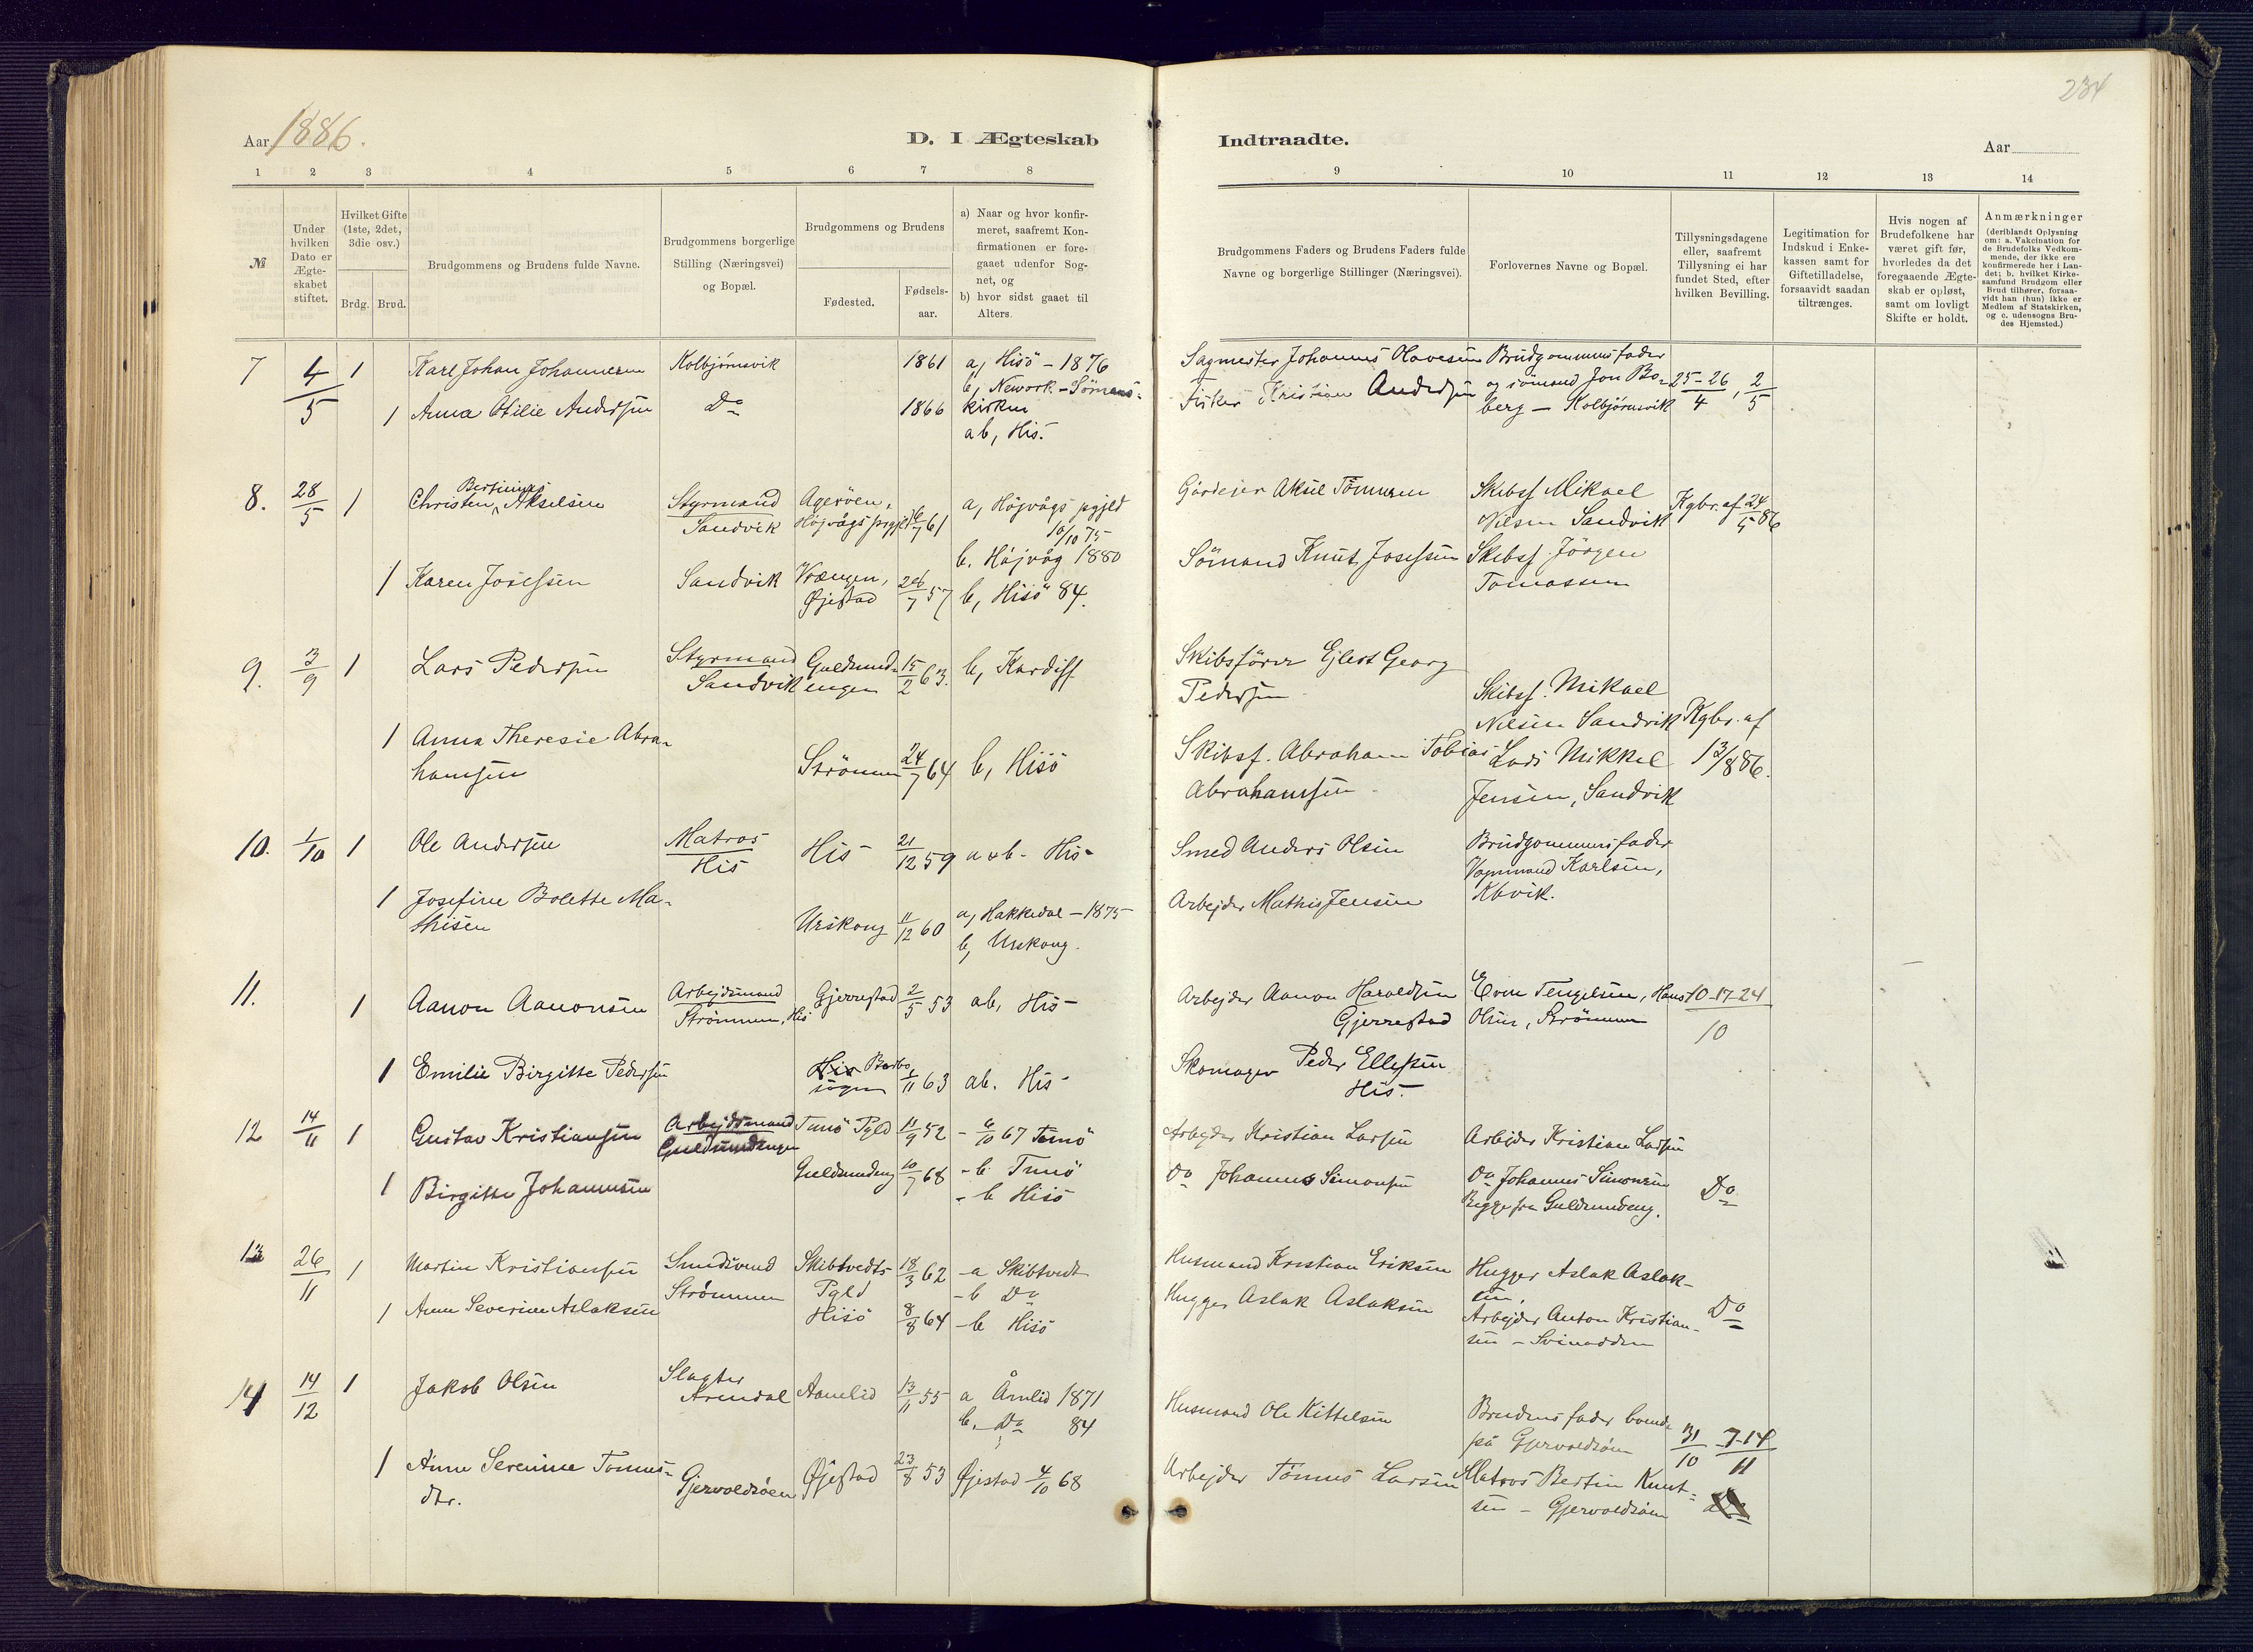 234
Aar 1886.
D. I Ægteskab
Indtraadte.
Aar
1 2 3 4 5 6 7 8
9 10 11 12 13 14
№
Under hvilken Dato er Ægte-skabet stiftet.
Hvilket Gifte (1ste, 2det, 3die osv.)
Brdg. Brud.
Brudgommens og Brudens fulde Navne.
Brudgommens borgerlige Stilling (Næringsvei) og Bopæl.
Brudgommens og Brudens
Fødested.
Fødsels-aar.
a) Naar og hvor konfir-meret, saafremt Kon-firmationen er fore-gaaet udenfor Sog-net, og
b) hvor sidst gaaet til Alters.
Brudgommens Faders og Brudens Faders fulde Navne og borgerlige Stillinger (Næringsvei).
Forlovernes Navne og Bopæl.
Tillysningsdagene eller, saafremt Tillysning ei har fundet Sted, efter hvilken Bevilling.
Legitimation for Indskud i Enke-kassen samt for Giftetilladelse, forsaavidt saadan tiltrænges.
Hvis nogen af Brudefolkene har været gift før, hvorledes da det foregaaende Ægte-skab er opløst, samt om lovligt Skifte er holdt.
Anmærkninger (deriblandt Oplysning om: a. Vakcination for de Brudefolks Vedkom-mende, der ikke ere konfirmerede her i Lan-det; b. hvilket Kirke-samfund Brudgom eller Brud tilhører, forsaa-vidt han (hun) ikke er Medlem af Statskirken, og c. udensogns Bru-des Hjemsted.)
7 4/5 1 Karl Johan Johannesen Kolbjørnsvik 1861 a, Hisö - 1876
b, Nework - Sömans-
kirken
1 Anna Otilie Andersen Do 1866
ab, His.
Sagmester Johannes Olavesen Brudgommens fader
Fisker Kristian Andersen og sömand Jon Bo-
berg - Kolbjörnsvik 25-26/4, 2/5
8. 28/5 1 Christen Bertinius Akselsen Styrmand Sandvik Agerøen, Höjvågs prgjeld 6/7 61 a, Höjvågs pgjeld
16/10 75
b. Höjvåg 1880
1 Karen Josefsen Sandvik Vrængen, Øjestad 26/7 57 b, Hisö 84.
Gårdejer Aksel Tömmesen Skibsf Mikael
Nilsen Sandvik Kgbr. af 24/5 86
Sömand Knut Josefsen Skibsf. Jörgen
Tomassen
9. 3/9 1 Lars Pedersen Styrmand Sandvik Guldsmedengen 15/2 63. b, Kardiff
1 Anna Theresie Abra-
hamsen Strömmen 24/7 64 b, Hisö
Skibsförer Ejlert Georg
Pedersen Skibsf. Mikael
Nilsen Sandvik Kgbr. af
Skibsf. Abraham Tobias Lars Mikkel 13/8 86.
Abrahamsen Jensen, Sandvik
10. 1/10 1 Ole Andersen Matros His His 21/12 59 a & b - His
1 Josefine Bolette Ma-
thisen Urskoug 11/12 60 a, Hakkedal - 1875
b, Urskoug.
Smed Anders Olsen Brudgommens fader
Vognmand Karlsen,
Arbejder Mathis Jensen Kbvik.
11. 1 Aanon Aanonsen Arbejdsmand Strömmen, His Gjerrestad 2/5 53 ab, His
1 Emilie Birgitte Pedersen His Barbo sogn 1/11 63 ab. His
Arbejder Aanon Haraldsen Even Tengelsen, Hans 10-17-24/10
Gjerrestad Olsen, Strömmen
Skomager Peder Ellefsen
His.
12 14/11 1 Gustav Kristiansen Arbejdsmand Guldsmedengen Tunö Pgld 11/9 52 - 6/10 67 Tunö
- b. Tunö
1 Birgitte Johannesen Guldsmedeng 10/7 68
- b Hisö
Arbejder Kristian Larsen Arbejder Kristian Larsen
Do Johannes Simonsen Do Johannes Simonsen Do
Begge fra Guldsmedeng.
13 26/11 1 Martin Kristiansen Smedsvend Strömmen Skibtvedts Pgld 18/3 62 - a Skibtvedt
- b Do
1 Anne Severine Aslaksen Hisö 8/8 64 - b Hisö
Husmand Kristian Eriksen Hugger Aslak Aslak-
sen,
Hugger Aslak Aslaksen Arbejder Anton Kristian- Do
sen - Svinodden
14 14/12 1 Jakob Olsen Slagter Arendal Aamlid 13/11 55 a Åmlid 1871
b. Do 84
1 Anne Serenine Tomes-
dtr. Gjervoldsöen Øjestad 23/8 53 Øjestad 4/10 68
Husmand Ole Kittelsen Brudens fader boende
på Gjervoldsöen 31/10 7-14/11
Arbejder Tömes Larsen Matros Bertin Knut-
sen - Gjervoldsöen